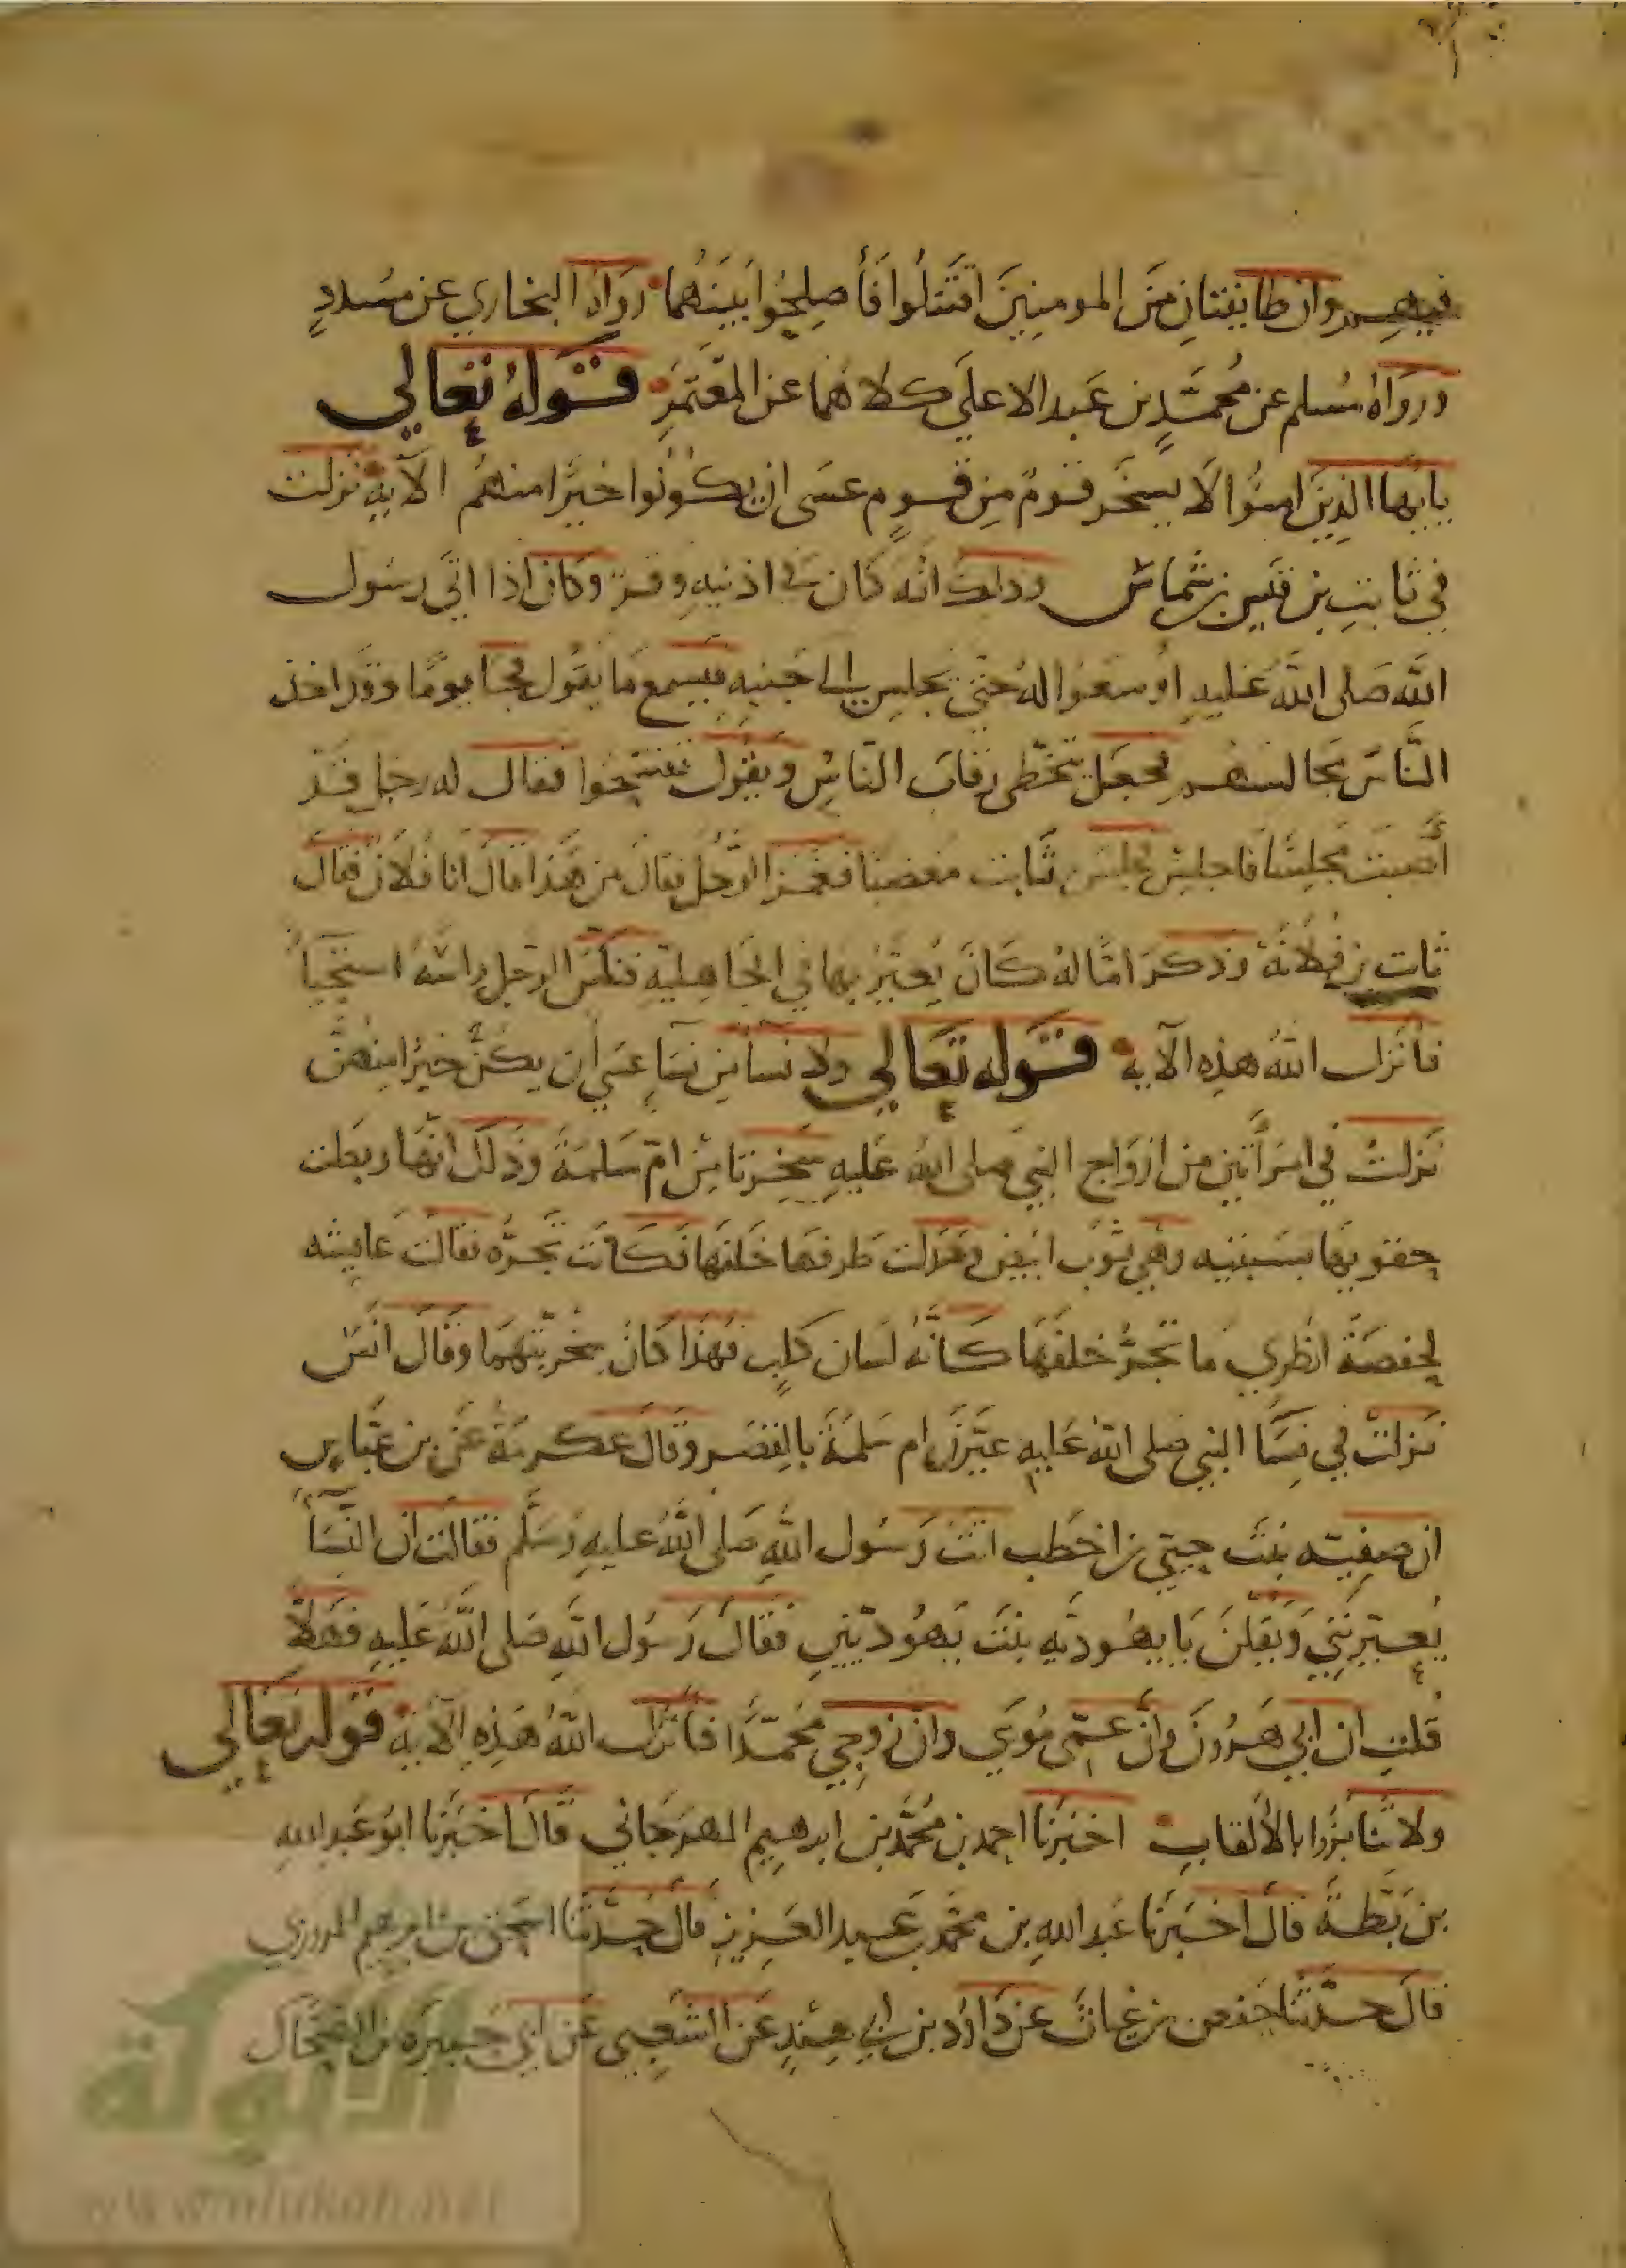 فيهم وان طايفتان من المومنين اقتتلوا فأصلحوا بينهما رواه البخاري عن مسدد
ورواه مسلم عن محمد بن عبد الاعلى كلاهما عن المعتمر قوله تعالى
يايها الذين امنوا لا يسخر قوم من قوم عسى ان يكونوا خيرا منهم الآية نزلت
في ثابت بن قيس بن شماس وذلك انه كان في اذنيه وقر وكان اذا اتى رسول
الله صلى الله عليه اوسعوا له حتى يجلس الى جنبه فيسمع ما يقول فجا يوما وقد اخذ
الناس مجالسهم فجعل يتخطى رقاب الناس ويقول تفسحوا فقال له رجل قد
أصبت مجلسا فاجلس فجلس ثابت مغضبا فغمز الرجل فقال من هذا قال انا فلان فقال
ثابت بن فلانة وذكر امّا له كان يعير بها في الجاهلية فنكس الرجل راسه استحياً
فأنزل الله هذه الآية قوله تعالى ولا نسا من نسا عسى أن يكن خيرا منهن
نزلت في امرأتين من ازواج النبي صلى الله عليه سخرتا من امّ سلمة وذلك انها ربطت
حقويها بسبنيه وهي ثوب ابيض وعزلت طرفها خلفها فكانت تجره فقالت عايشه
لحفصة انظري ما تجر خلفها كأنه لسان كلب فهذا كان سخريتهما وقال انس
نزلت في نسا النبي صلى الله عليه عيرن ام سلمة بالقصر وقال عكرمة عن بن عباس
ان صفيه بنت حيي بن اخطب اتت رسول الله صلى الله عليه وسلم فقالت ان النسآ
يعيرنني ويقلن يا يهوديه بنت يهوديين فقال رسول الله صلى الله عليه فهلا
قلت ان ابي هرون وان عمى موسي وان زوجي محمدا فأنزل الله هذه الآية قوله تعالي
ولا تنابزوا بالألقاب اخبرنا احمد بن محمد بن ابرهيم المهرجاني قال اخبرنا ابو عبد الله
بن بطة قال اخبرنا عبد الله بن محمد بن عبد العزيز قال حدثنا اسحق بن ابرهيم المروزي
قال حدثنا حفص بن غياث عن داود بن أبي هند عن الشعبي عن ابي جبيره بن الضحاك